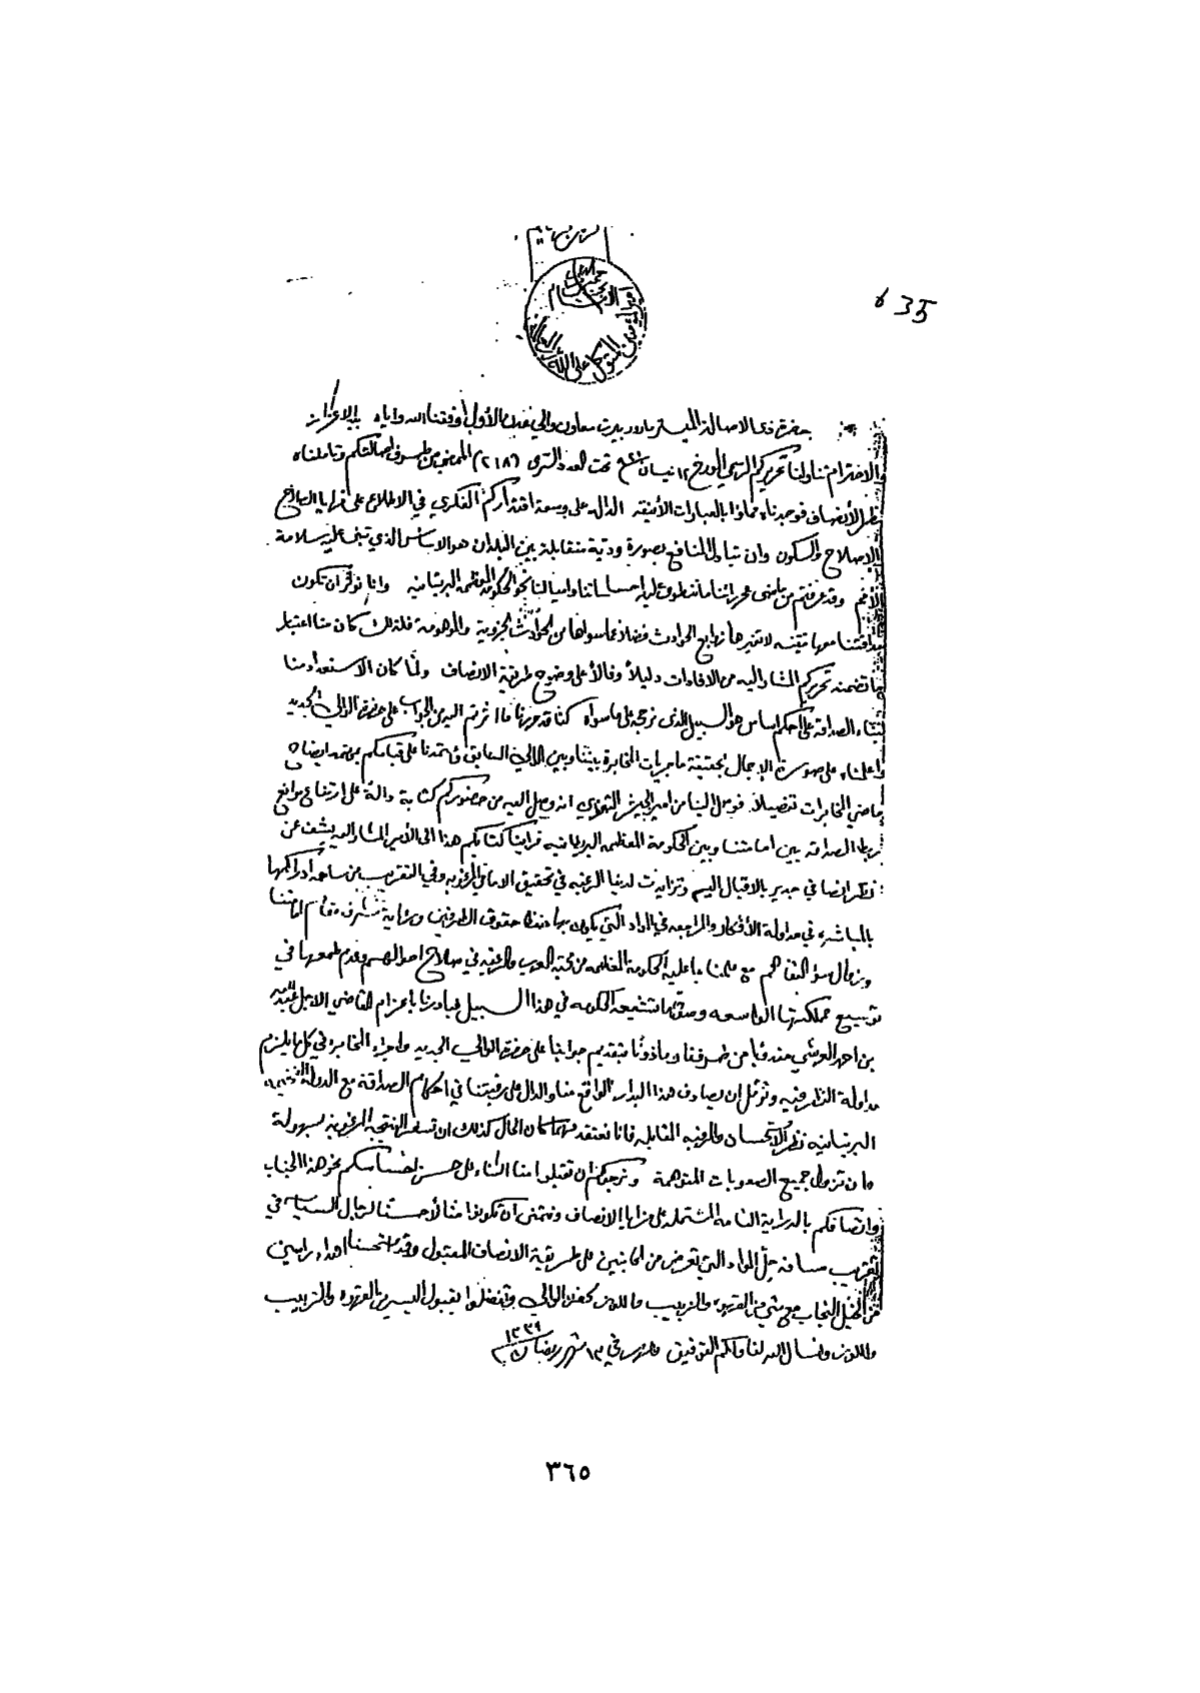 635
المتوكل على الله
حضرة ذي الاصالة المستر بارد بيرت معاون والي عدن الأول وفقنا الله واياه بالاعزاز
والاحترام تناولنا تحريركم الرسمي المورخ ١٢ نيسان تحت العدد السري (٢١٨) من طرف اصالتكم وتأملناه
بنظر الأنصاف فوجدناه مملوءا بالعبارات الأنيقه الداله على وسعة اقتداركم الفكري في الاطلاع على مزايا الصلاح
الإصلاح والسكون وان تبادل المنافع بصورة ودية متقابلة بين البلدان هو الاساس الذي تبنى عليه سلامة
الأمم وقد عرفتم من ماضي محرراتنا ما تنطوي عليه احساساتنا واميالنا نحو الحكومة العظمه البريتانيه وانا نوثر ان تكون
صداقتنا معها متينه لا تغيرها زوابع الحوادث فضلا عما سواها من الحوادث الجزوية والموهومة فلذلك كان منا اعتبار
ما تضمنه تحريركم المشار اليه من الافادات دليلاً وفالاً على وضوح طريقة الانصاف ولما كان الاستعداد منا
لبناء الصداقه على احكم اساس هو السبيل الذي نرجحه على ما سواه كنا قد حررنا ما اشرتم اليه من الجواب على حضرة الوالي الجديد
واعلمناه على صورة الإجمال بحقيقة ماجريات المخابرة بيننا وبين الوالي السابق واعتمدنا على قيامكم بمهمة ايضاح
ماضي المخابرات تفصيلاً فوصل الينا من امير الجيش التهامي انه وصل اليه من حضوركم كتابة دالة على ارتفاع موانع
ربط الصداقه بين امامتنا وبين الحكومة العظمه البريطانيه فرأينا كتابكم هذا الى الأمير المشار اليه يشف عن
نظر انصافي جدير بالاقبال اليه وتزايدت لدينا الرغبه في تحقيق الاماني المرغوبه وفي التقرب من ساحة ادراكها
بالمباشره في مداولة الأفكار والمراجعه في المواد التي يكون بها حفظ حقوق الطرفين ورعاية شرف مقام امامتنا
وبزوال سوء التفاهم مع علمنا بما عليه الحكومة العظمه من محبة العرب والرغبه في صلاح احوالهم وعدم طمعها في
توسيع مملكتها الواسعه وصدق ما تشيعه الحكومه في هذا السبيل فبادرنا باعزام القاضي الاجل عبد الله
بن احمد العرشي مندوبا من طرفنا ومأذونا بتقديم جوابنا على حضرة الوالي الجديد واجراء المخابره في كل ما يلزم
مداولة النظر فيه ونؤمل ان يصادف هذا البدار الواقع منا والدال على رغبتنا في احكام الصداقة مع الدولة الفخيمه
البريتانيه نظر الاستحسان والرغبه المقابله فانا نعتقد مهما كان الحال كذلك ان تسفر النتيجة المرغوبه بسهولة
وان تزول جميع الصعوبات المتوهمة ونرجوكم ان تقبلوا منا الثناء على حسن احساساتكم نحو هذا الجناب
واتصافكم بالدراية التامه المشتمله على مزايا الانصاف ونتمنى ان تكونوا مثالاً حسنا لرجال السياسه في
تقريب مسافة حل المواد التي تعرض من الجانبين على طريقة الانصاف المقبول وقد استحسنا اهداء راسين
من الخيل النجاب مع شي من القهوه والزبيب واللوز لحضرة الوالي وتفضلوا بقبول اليسير من القهوه والزبيب
واللوز ونسال الله لنا ولكم التوفيق وحرر في ١٣ شهر رمضان سنة ١٣٣٩
٣٦٥